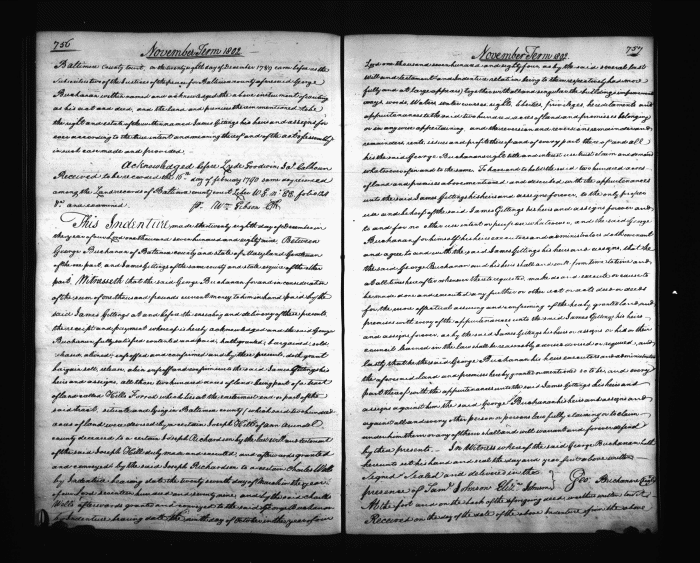 756
November Term 1802.
Baltimore County court, on the twenty eight day of December 1789 came before us the
Subscribers two of the Justices of the peace for Baltimore county aforesaid George
Buchanan within named and acknowledged the above instrument of writing
as his act and deed, and the land and premises therein mentioned to be
the right and estate of the within named James Gittings his heirs and assigns for
ever according to the true intent and meaning thereof and of the acts of assembly
in such case made and provided.
Acknowledged before Lyde Goodwin, Jas. Calhoun
Received to be recorded the 15th day of February 1790 same day received
among the Land records of Baltimore county in Liber W.G. No. EE. folio
&c. and examined
pr. Wm. Gibson Clk.
This Indenture, made the twenty eighth day of December in
the year of our Lord one thousand seven hundred and eighty nine Between
George Buchanan of Baltimore county and state of Maryland Gentleman
of the one part and James Gittings of the same county and state esquire of the other
part. Witnesseth that the said George Buchanan for and in consideration
of the sum of one thousand pounds current money to him in hand paid by the
said James Gittings at and before the ensealing and delivery of these presents
the receipt and payment whereof is hereby acknowledged and the said George
Buchanan fully satisfied contented and paid, hath granted, bargained, sold,
released, enfeoffed and confirmed and by these presents, doth grant
bargain sell, release, enfeoff and confirm unto the said James Gittings his
heirs and assigns, all those two hundred acres of land being part of a tract
of land called Hills Forest which lies at the part of the
said tract, situate and lying in Baltimore county (which said two hundred
acres of land were devised by a certain Joseph Hill of Ann Arundel
county deceased to a certain Joseph Richardson by the last will and testament
of the said Joseph Hill duly made and executed, and afterwards granted
and conveyed by the said Joseph Richardson to a certain Charles Wells
by Indenture bearing date the twenty seventh day of March in the year
of our Lord seventeen hundred and seventy nine, and by the said Charles
Wells afterwards granted and conveyed to the said George Buchanan
by Indenture bearing date the ninth day of October in the year of our
757
November Term 1802.
Lord one thousand seven hundred and eighty four as by the said several last
will and testament and Indentures relation being to them respectively had more
fully and at large appears) together with all and singular the buildings improvements
ways, woods, Waters, water courses, rights, liberties, privileges, hereditaments and
appurtenances to the said two hundred acres of land and premises belonging
or in any wise appertaining, and the reversion and reversions remainder and
remainders, rents, issues and profits thereof and of every part thereof and all
his the said George Buchanans right title and interest use trust claim and demand
whatsoever of in and to the same. To have and to hold the said two hundred acres
of land and premises above mentioned and described with the appurtenances
unto the said James Gittings his heirs and assigns forever, to the only proper
use and behoof of the said James Gittings his heirs and assigns forever and
to and for no other use intent or purpose whatsoever, and the said George
Buchanan for himself his heirs executors and administrators doth covenant
and agree to and with the said James Gittings his heirs and assigns, that he
the said George Buchanan and his heirs shall and will from time to time and
at all times hereafter whenever thereto requested, make do and execute or cause to
be made done and executed any further or other act or acts deed or deeds
for the more effectual assuring and confirming of the hereby granted land and
premises with every of the appurtenances unto the said James Gittings his heirs
and assigns forever, as by the said James Gittings his heirs or assigns or his or their
council learned in the law shall be reasonably advised devised or required, and
lastly that he the said George Buchanan his heirs executors and administrators
the aforesaid land and premises hereby granted or mentioned so to be, and every
part thereof with the appurtenances unto the said James Gittings his heirs and
assigns against him the said George Buchanan his heirs and assigns and
against all and every other person or persons lawfully claiming or to claim
under him them or any of them shall and will warrant and forever defend
by these presents. In Witness whereof the said George Buchanan hath
hereunto set his hand and seal the day and year first above written.
Signed Sealed and delivered in the
presence of Saml. Johnson Eliz. Johnson } Geo. Buchanan (seal)
At the foot and on the back of the aforegoing deed was thus written towit:
Received on the day of the date of the above Indenture of and in the above